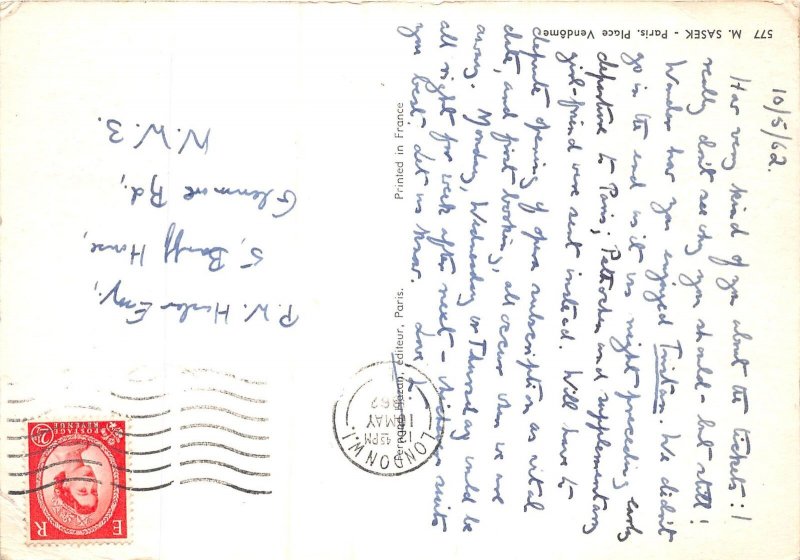 577 M. SASEK - Paris, Place Vendôme
10/5/62.
How very kind of you about the tickets: I
really don't see why you should - but still!
Wonder how you enjoyed Tristan. We didn't
go in the end as it was night preceding early
departure to Paris; Patroclus and supplementary
girl-friend were sent instead. Will have to
depute opening of opera subscription as vital
date, and first booking, all occur when we are
away. Monday, Wednesday or Thursday would be
all right for week after next - whichever suits
you best. Let us know. Love
Printed in France
Fernand Hazan, éditeur, Paris.
P.W. Esq.,
5, Banff House,
Glenmore Rd.,
N.W.3.
LONDON W.1.
45 PM
11 MAY
1962
POSTAGE
REVENUE
2½D
E R